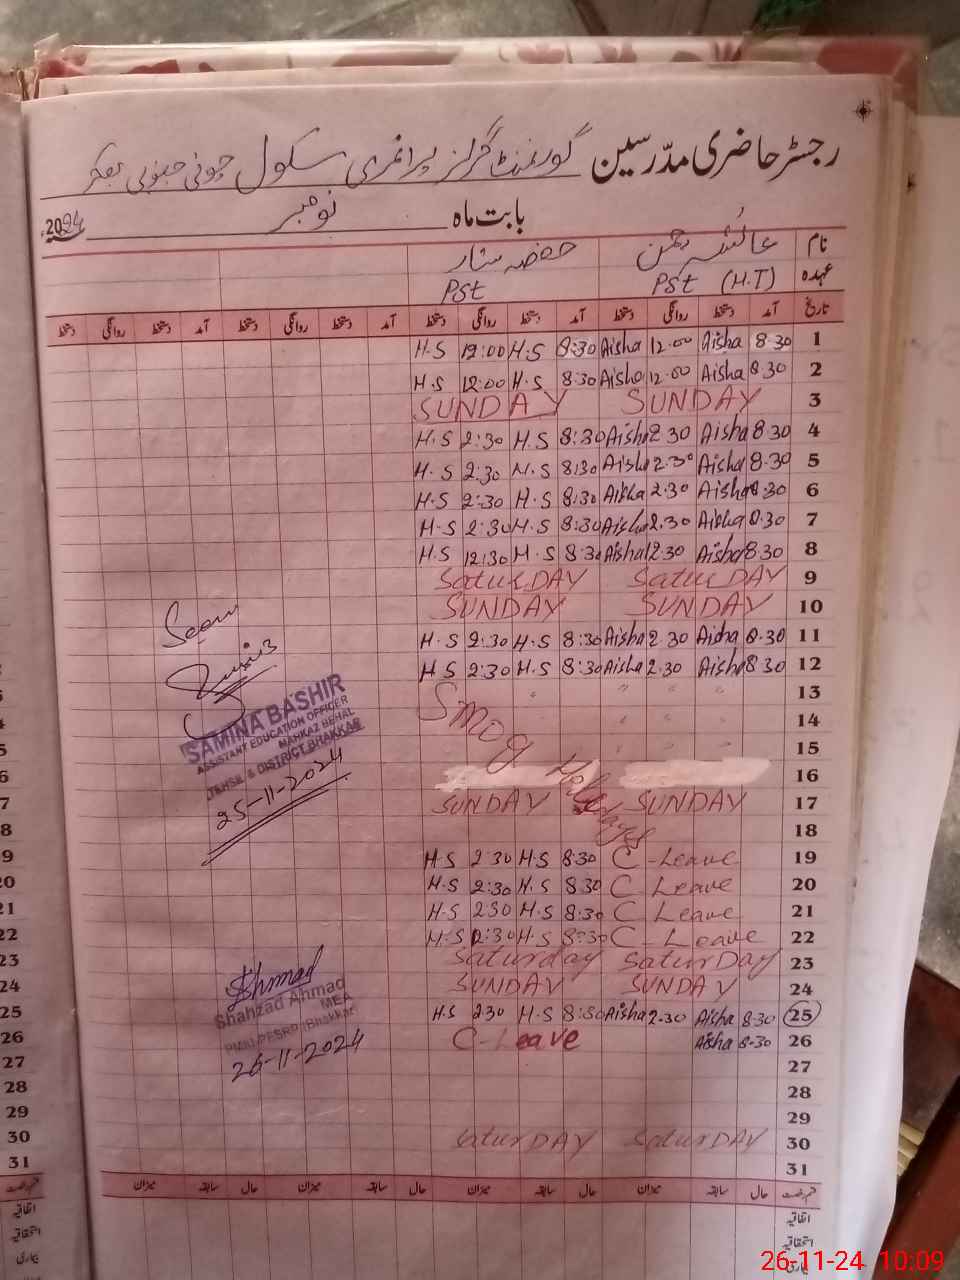 رجسٹر حاضری مدّرسین گورنمنٹ گرلز پرائمری سکول جنوبی بھکر
بابت ماہ نومبر 2024ء
نام عائشہ حفصہ ستار
عہدہ PST (H.T) PST
تاریخ آمد دستخط روانگی دستخط آمد دستخط روانگی دستخط آمد دستخط روانگی دستخط آمد دستخط روانگی دستخط
1 8.30 Aisha 12.00 Aisha 8:30 H.S 12:00 H.S
2 8.30 Aisha 12.00 Aisha 8:30 H.S 12:00 H.S
3 SUNDAY SUNDAY
4 8.30 Aisha 2.30 Aisha 8:30 H.S 2:30 H.S
5 8.30 Aisha 2.30 Aisha 8:30 H.S 2:30 H.S
6 8.30 Aisha 2.30 Aisha 8:30 H.S 2:30 H.S
7 8.30 Aisha 2.30 Aisha 8:30 H.S 2:30 H.S
8 8.30 Aisha 12.30 Aisha 8:30 H.S 12:30 H.S
9 SaturDAY SaturDAY
10 SUNDAY SUNDAY
11 8.30 Aisha 2.30 Aisha 8:30 H.S 2:30 H.S
12 8.30 Aisha 2.30 Aisha 8:30 H.S 2:30 H.S
13
14 Smog
15
16 Holidays
17 SUNDAY SUNDAY
18
19 C-Leave 8.30 H.S 2:30 H.S
20 C-Leave 8.30 H.S 2:30 H.S
21 C-Leave 8:30 H.S 2:30 H.S
22 C-Leave 8:30 H.S 2:30 H.S
23 SaturDay Saturday
24 SUNDAY SUNDAY
25 8.30 Aisha 2.30 Aisha 8:30 H.S 2:30 H.S
26 8.30 Aisha C-Leave
27
28
29
30 SaturDAY SaturDAY
31
حال سابقہ میزان حال سابقہ میزان حال سابقہ میزان حال سابقہ میزان
اتفاقیہ
استحقاقیہ
بیماری
Seen
SAMINA BASHIR
ASSISTANT EDUCATION OFFICER
MARKAZ BEHAL
TEHSIL & DISTRICT BHAKKAR
25-11-2024
Ahmad
Shahzad Ahmad
MEA
PMIU-PESRP (Bhakkar)
26-11-2024
26-11-24 10:09